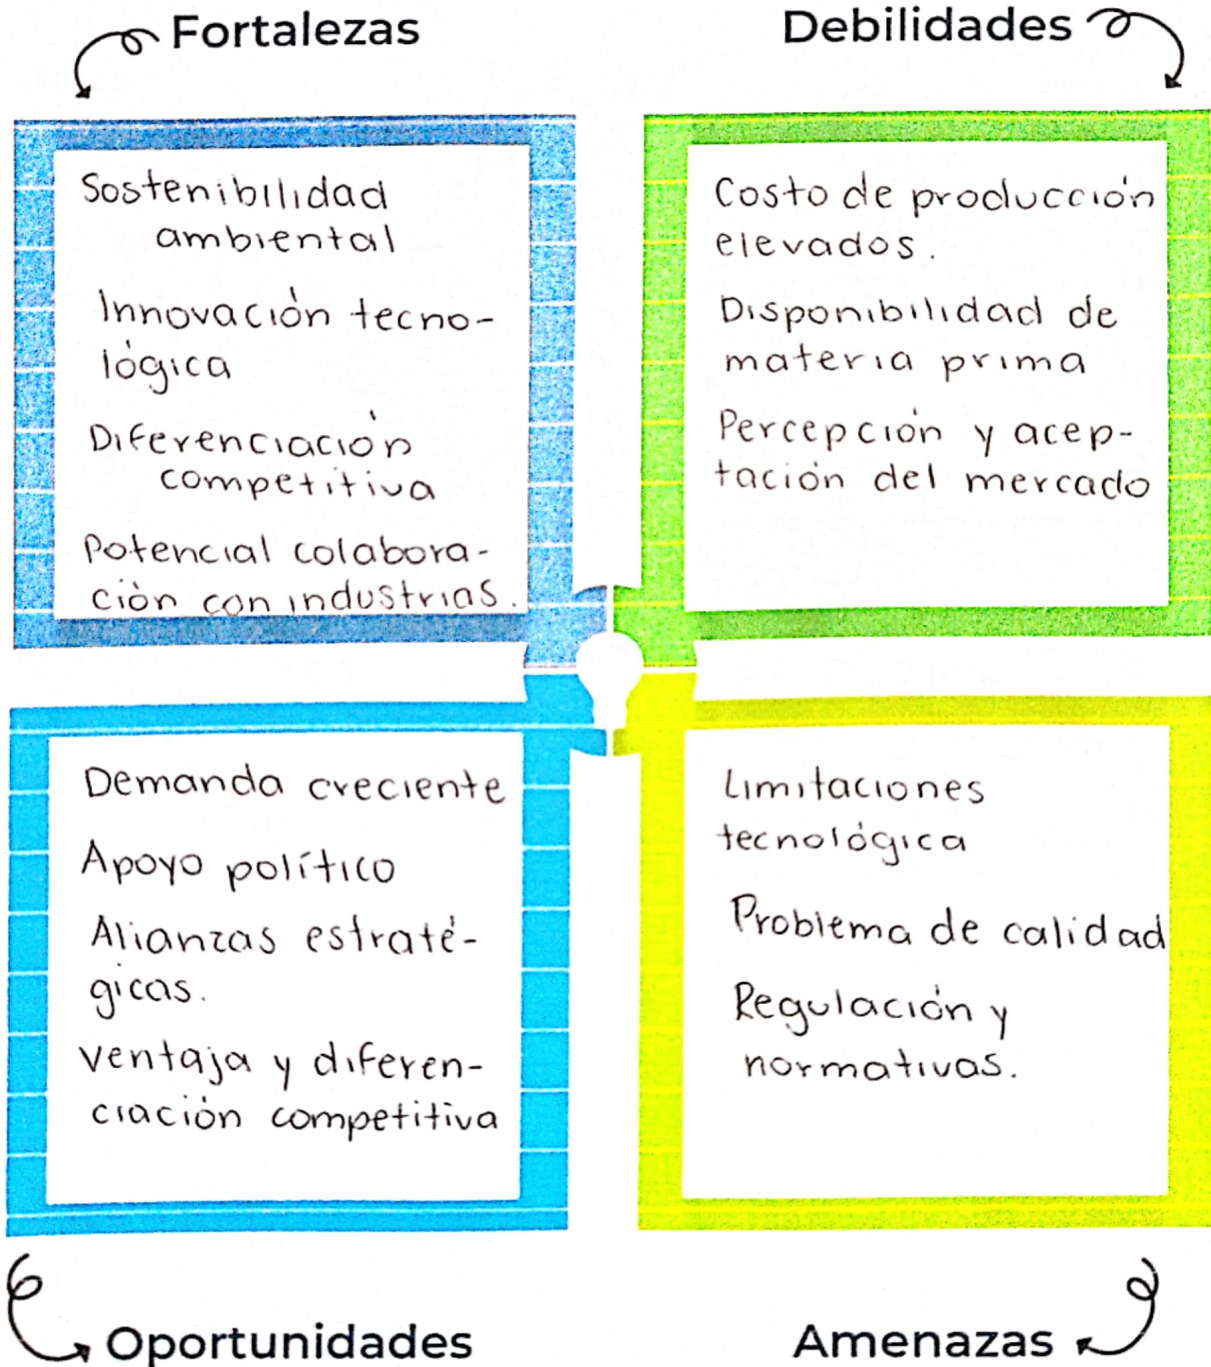 Fortalezas
Sostenibilidad
ambiental
Innovación tecno-
lógica
Diferenciación
competitiva
Potencial colabora-
ción con industrias.
Debilidades
Costo de producción
elevados.
Disponibilidad de
materia prima
Percepción y acep-
tación del mercado
Demanda creciente
Apoyo político
Alianzas estraté-
gicas.
ventaja y diferen-
ciación competitiva
Oportunidades
Limitaciones
tecnológica
Problema de calidad
Regulación y
normativas.
Amenazas